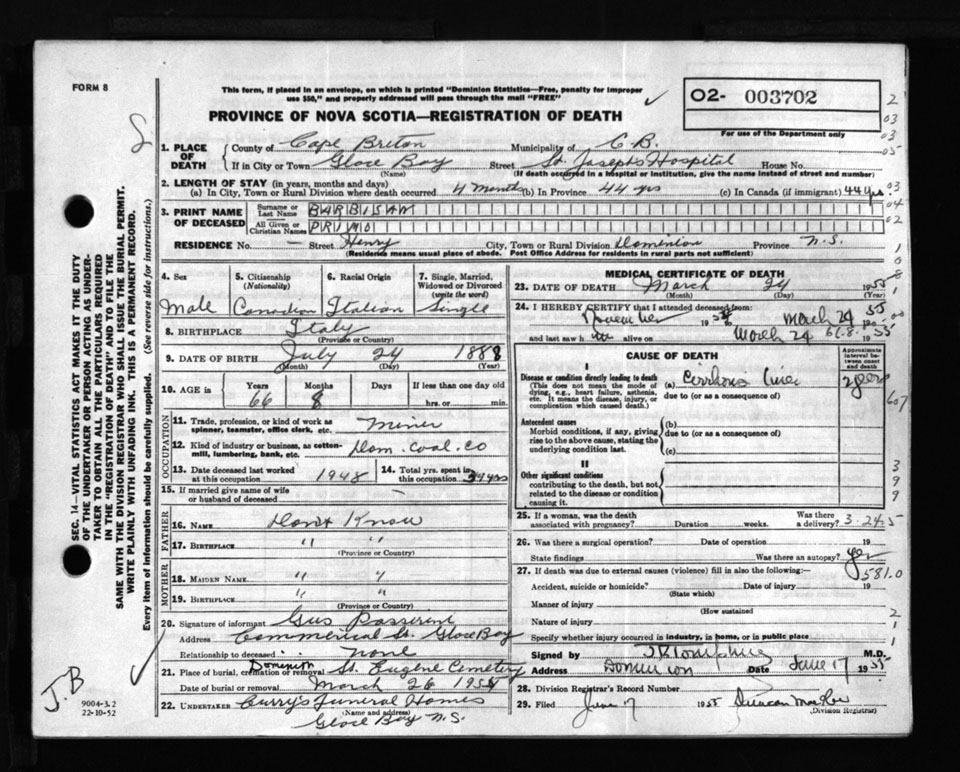 FORM 8
This form, if placed in an envelope, on which is printed "Dominion Statistics—Free, penalty for improper
use $50," and properly addressed will pass through the mail "FREE"
PROVINCE OF NOVA SCOTIA—REGISTRATION OF DEATH
O2- 003702
For use of the Department only
1. PLACE OF DEATH
County of Cape Breton Municipality of C B.
If in City or Town Glace Bay Street St. Joseph's Hospital House No.
(Name) (If death occurred in a hospital or institution, give the name instead of street and number)
2. LENGTH OF STAY (in years, months and days)
(a) In City, Town or Rural Division where death occurred 4 months (b) In Province 44 yrs (c) In Canada (if immigrant) 44 yrs
3. PRINT NAME OF DECEASED
Surname or Last Name BARBISAN
All Given or Christian Names PRIMO
RESIDENCE No. — Street Henry City, Town or Rural Division Dominion Province N.S.
(Residence means usual place of abode. Post Office Address for residents in rural parts not sufficient)
4. Sex Male
5. Citizenship (Nationality) Canadian
6. Racial Origin Italian
7. Single, Married, Widowed or Divorced (write the word) Single
8. BIRTHPLACE Italy
(Province or Country)
9. DATE OF BIRTH July 24 1888
(Month) (Day) (Year)
10. AGE is Years 66 Months 8 Days If less than one day old hrs. or min.
OCCUPATION
11. Trade, profession, or kind of work as spinner, teamster, office clerk, etc. Miner
12. Kind of industry or business, as cotton-mill, lumbering, bank, etc. Dom. Coal. Co
13. Date deceased last worked at this occupation 1948
14. Total yrs. spent in this occupation yrs
15. If married give name of wife or husband of deceased —
FATHER
16. NAME Don't Know
17. BIRTHPLACE " "
(Province or Country)
MOTHER
18. MAIDEN NAME " "
19. BIRTHPLACE " "
(Province or Country)
20. Signature of informant Gus Passerini
Address Commercial St. Glace Bay
Relationship to deceased none
21. Place of burial, cremation or removal Dominion St. Eugene Cemetery
Date of burial or removal March 26 195
22. UNDERTAKER Curry's Funeral Homes
(Name and address)
Glace Bay N.S.
MEDICAL CERTIFICATE OF DEATH
23. DATE OF DEATH March 24 1955
(Month) (Day) (Year)
24. I HEREBY CERTIFY that I attended deceased from:
November 1954 March 24 1955
and last saw h im alive on March 24 1955
CAUSE OF DEATH
Approximate interval between onset and death
I
Disease or condition directly leading to death
(This does not mean the mode of dying, e.g., heart failure, asthenia, etc. It means the disease, injury, or complication which caused death.)
(a) Cirrhosis liver
due to (or as a consequence of)
Antecedent causes
Morbid conditions, if any, giving rise to the above cause, stating the underlying condition last.
(b)
due to (or as a consequence of)
(c)
II
Other significant conditions
contributing to the death, but not related to the disease or condition causing it.
25. If a woman, was the death associated with pregnancy? Duration weeks. Was there a delivery? 3-24-5
26. Was there a surgical operation? Date of operation 19
State findings Was there an autopsy? yes
27. If death was due to external causes (violence) fill in also the following:— 581.0
Accident, suicide or homicide? Date of injury 19
(State which)
Manner of injury
(How sustained)
Nature of injury
Specify whether injury occurred in industry, in home, or in public place
Signed by M.D.
Address Dominion Date June 17 1955
28. Division Registrar's Record Number
29. Filed June 17 1955 Duncan MacRae
(Division Registrar)
SEC. 14—VITAL STATISTICS ACT MAKES IT THE DUTY
OF THE UNDERTAKER OR PERSON ACTING AS UNDER-
TAKER TO OBTAIN ALL THE PARTICULARS REQUIRED
IN THE "REGISTRATION OF DEATH" AND TO FILE THE
SAME WITH THE DIVISION REGISTRAR WHO SHALL ISSUE THE BURIAL PERMIT.
WRITE PLAINLY WITH UNFADING INK. THIS IS A PERMANENT RECORD.
Every item of information should be carefully supplied. (See reverse side for instructions.)
J.B
9004-3.2
22-10-52